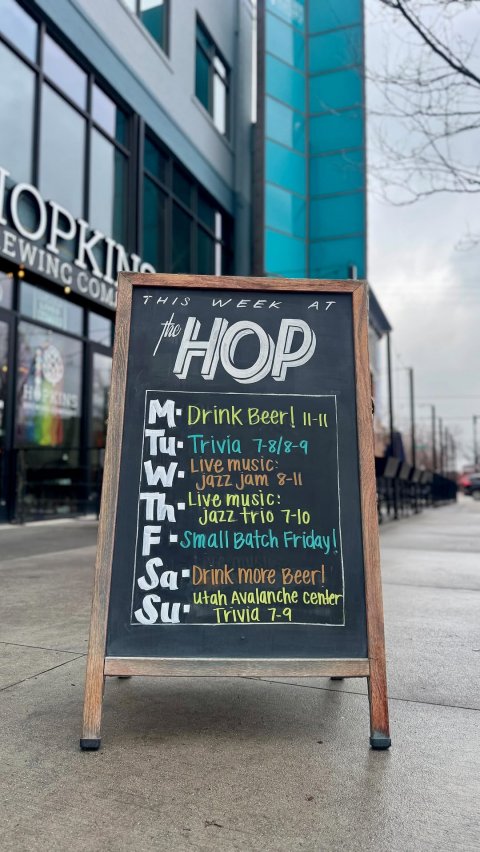 HOPKINS
EWING COM
HOPKINS
THIS WEEK AT
the HOP
M· Drink Beer! 11-11
Tu· Trivia 7-8/8-9
W· Live music:
jazz jam 8-11
Th· Live music:
jazz trio 7-10
F· Small Batch Friday!
Sa· Drink more Beer!
Su· Utah Avalanche center
Trivia 7-9